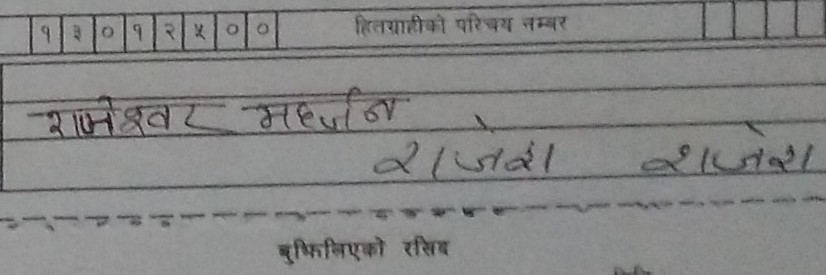 १३०१२५०० हितग्राहीको परिचय नम्बर
राजेश्वर महर्जन
राजेश राजेश
बुझिलिएको रसिद